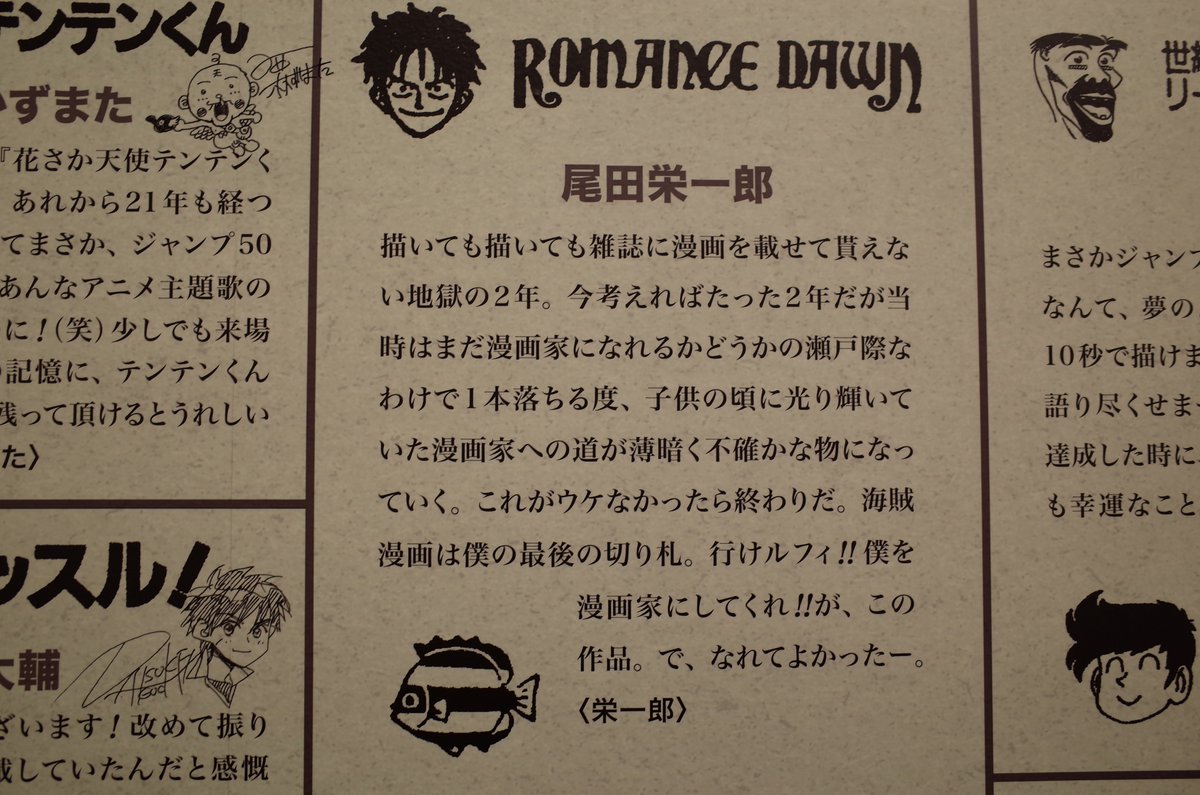 テンテンくん
かずまた
『花さか天使テンテンく
あれから21年も経つ
てまさか、ジャンプ50
あんなアニメ主題歌の
に！(笑)少しでも来場
記憶に、テンテンくん
残って頂けるとうれしい
た〉
ッスル！
大輔
ざいます！改めて振り
載していたんだと感慨
ROMANCE DAWN
尾田栄一郎
描いても描いても雑誌に漫画を載せて貰えな
い地獄の2年。今考えればたった2年だが当
時はまだ漫画家になれるかどうかの瀬戸際な
わけで1本落ちる度、子供の頃に光り輝いて
いた漫画家への道が薄暗く不確かな物になっ
ていく。これがウケなかったら終わりだ。海賊
漫画は僕の最後の切り札。行けルフィ!!僕を
漫画家にしてくれ!!が、この
作品。で、なれてよかったー。
〈栄一郎〉
世
リー
まさかジャンプ
なんて、夢の
10秒で描けま
語り尽くせませ
達成した時に
も幸運なこと